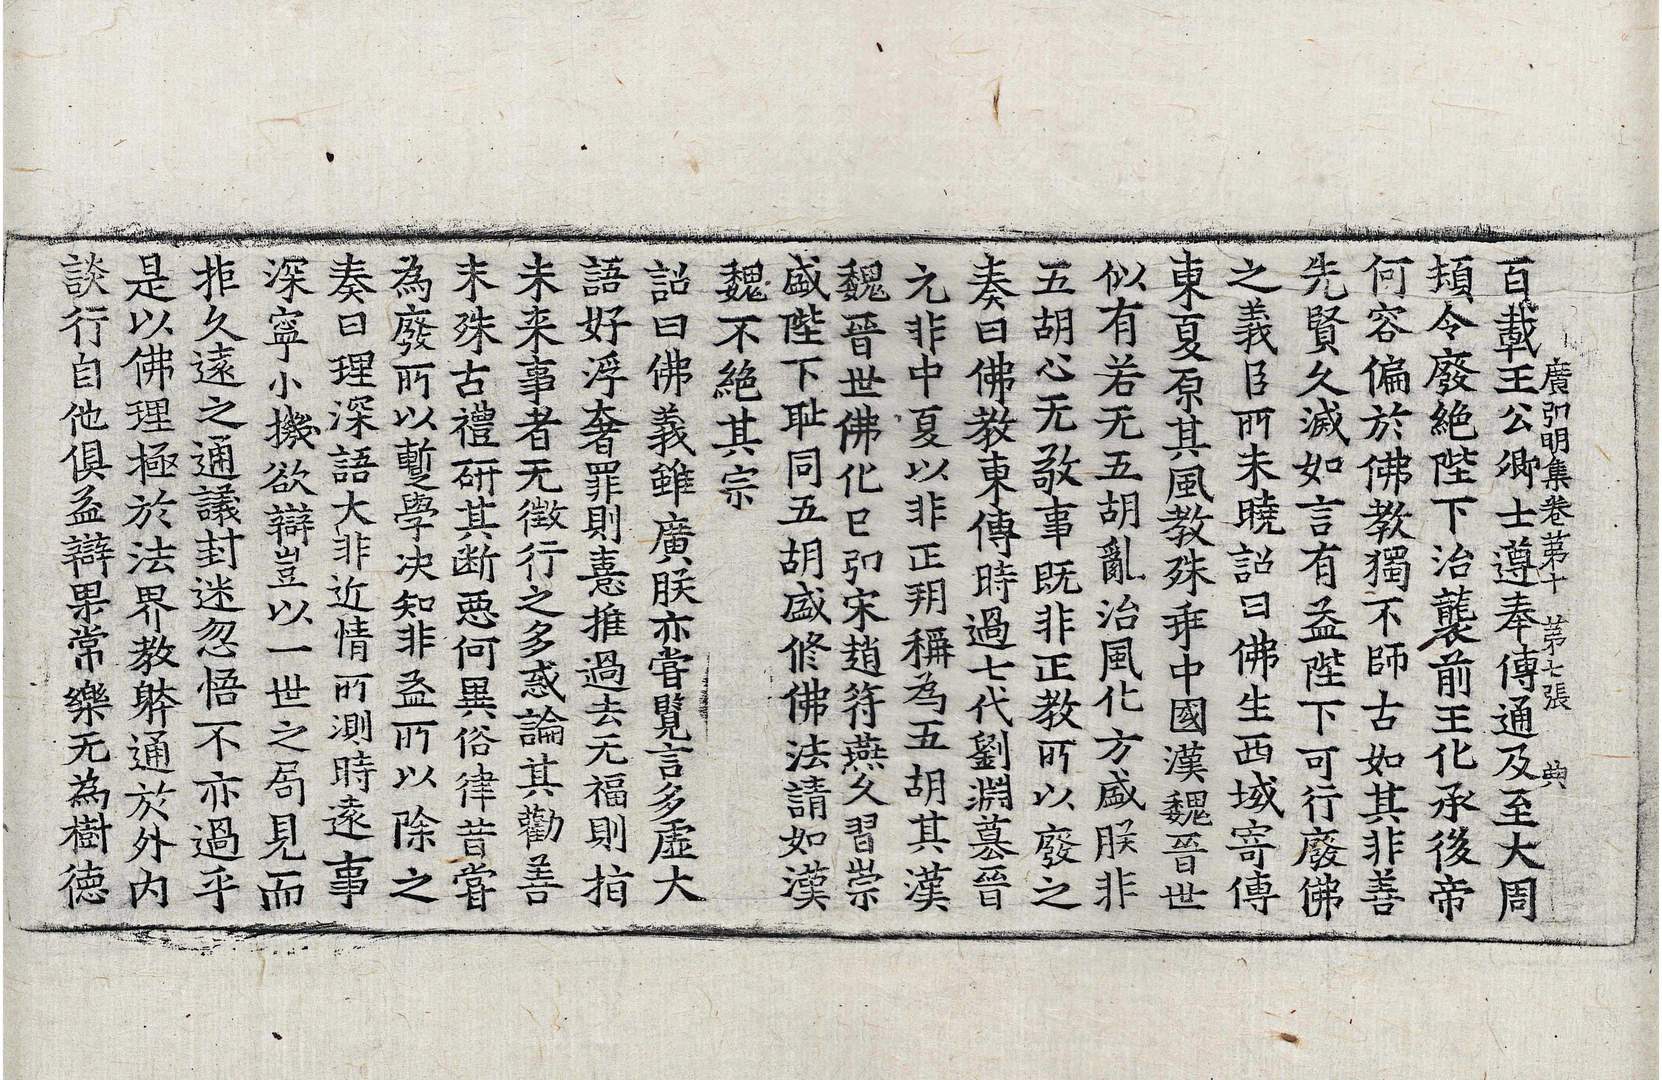 廣弘明集卷第十　第七張　典
百載王公卿士遵奉傳通及至大周
頓令廢絕陛下治襲前王化承後帝
何容偏於佛教獨不師古如其非善
先賢久滅如言有益陛下可行廢佛
之義臣所未曉詔曰佛生西域寄傳
東夏原其風教殊乖中國漢魏晉世
似有若无五胡亂治風化方盛朕非
五胡心无敬事既非正教所以廢之
奏曰佛教東傳時過七代劉淵篡晉
元非中夏以非正朔稱為五胡其漢
魏晉世佛化已弘宋趙符燕久習崇
盛陛下耻同五胡盛修佛法請如漢
魏不絕其宗
詔曰佛義雖廣朕亦嘗覽言多虛大
語好浮奢罪則憙推過去无福則指
未来事者无徵行之多惑論其勸善
未殊古禮研其断惡何異俗律昔嘗
為廢所以暫學决知非益所以除之
奏曰理深語大非近情所測時遠事
深寧小機欲辯豈以一世之局見而
拒久遠之通議封迷忽悟不亦過乎
是以佛理極於法界教躰通於外內
談行自他俱益辯果常樂无為樹德